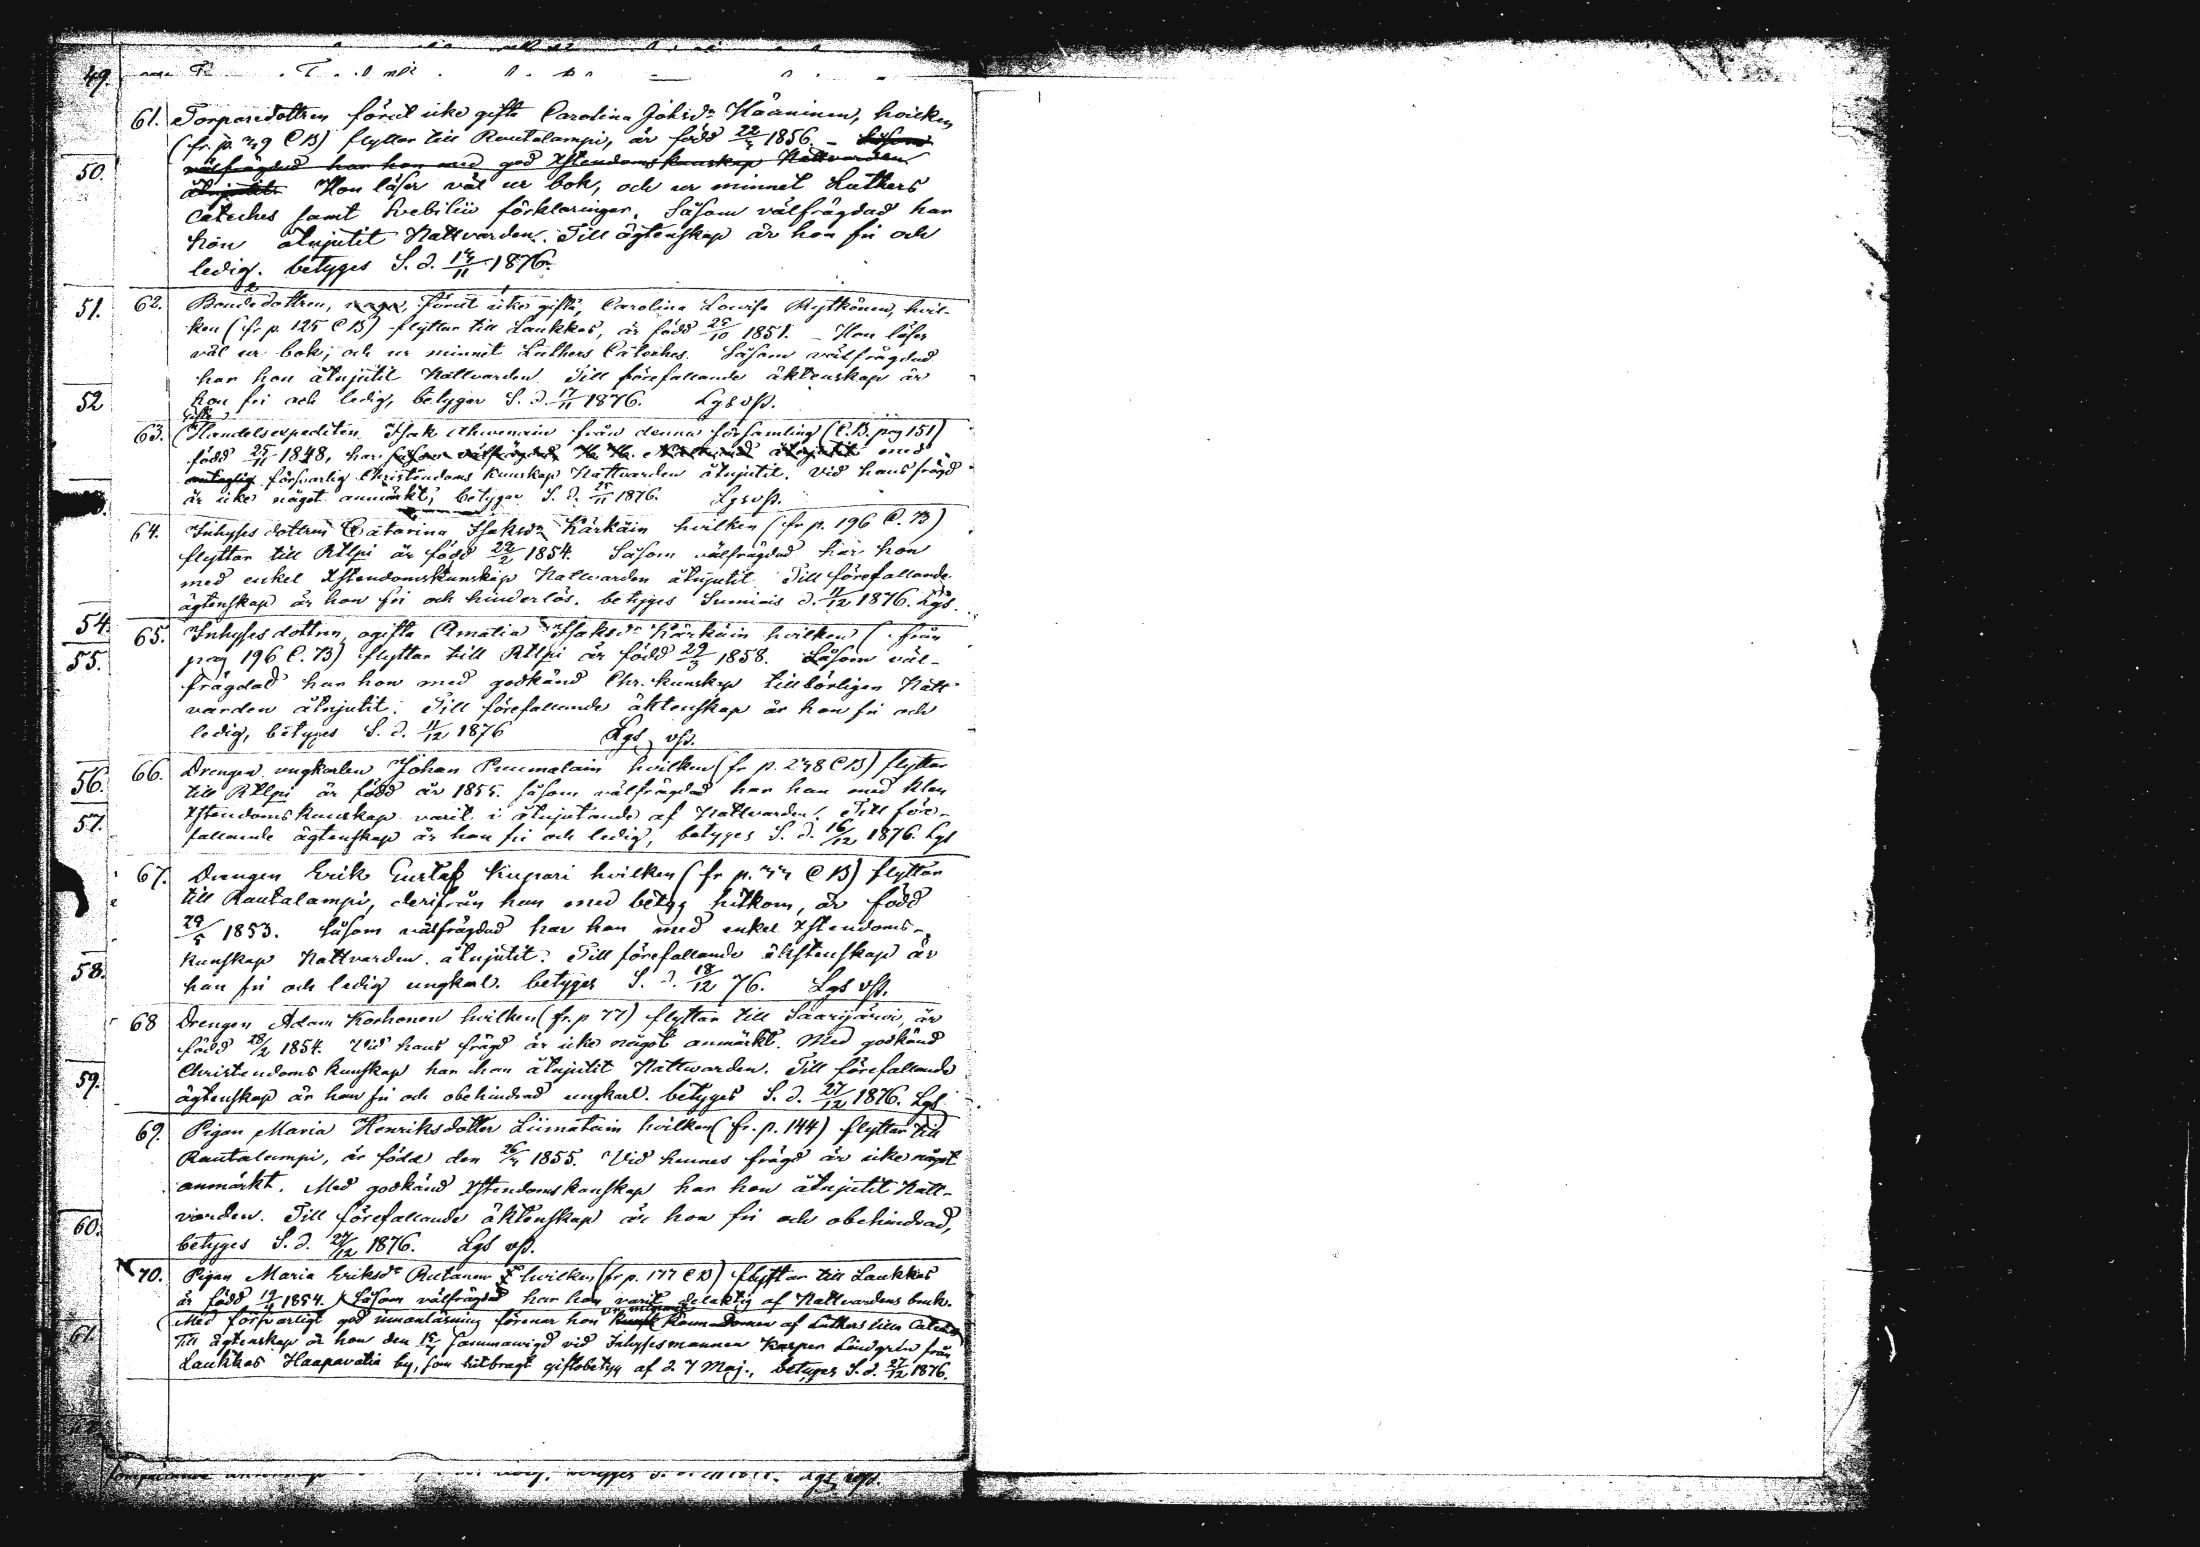 49.
61. Torparedottren förut icke gifta Carolina Johsdr Hääninen, hvilken
(fr. p. 49 C B) flyttar till Rautalampi, är född 22/4 1856. – Såsom
välfrägdad har hon med god Xstendomskunskap Nattvarden
åtnjutit. Hon läser väl ur bok, och ur minnet Luthers
Cateches samt Svebilii förklaringar. Såsom välfrägdad har
hon åtnjutit Nattvarden. Till ägtenskap är hon fri och
ledig. betyges S. d. 14/11 1876.
50.
51.
62. Bondedottren, förut icke gifta, Carolina Lovisa Rytkönen, hvil-
ken (fr p. 125 C B) flyttar till Laukkas, är född 25/10 1851. – Hon läser
väl ur bok, och ur minnet Luthers Cateches. Såsom välfrägdad
har hon åtnjutit Nattvarden. Till förefallande äktenskap är
hon fri och ledig, betyger S. d. 17/11 1876. Lgs vß.
52
gifte
63. Handelsexpediten Isak Ahvenain från denna församling (C.B. pag 151)
född 25/11 1848, har såsom välfrägdad åtnjutit med
antaglig försvarlig Christendoms kunskap Nattvarden åtnjutit. Vid hans frägd
är icke något anmärkt; betyger S. d. 25/11 1876. Lgs vß.
64. Inhyses dottren Catarina Isaksdr Kärkäin hvilken (fr p. 196 C. B)
flyttar till Rtlpi är född 22/2 1854. Såsom välfrägdad har hon
med enkel Xstendomskunskap Nattvarden åtnjutit. Till förefallande
ägtenskap är hon fri och hinderlös. betyges Sumiais d. 11/12 1876. Lgs.
54.
65. Inhyses dottren, ogifta Amalia Isaksdr Kärkäin hvilken (från
pag 196 C. B) flyttar till Rtlpi är född 29/3 1858. Såsom väl-
frägdad har hon med godkänd Chr. kunskap tillbörligen Natt-
varden åtnjutit. Till förefallande äktenskap är hon fri och
ledig, betyges S. d. 11/12 1876 Lgs vß.
55.
56.
66. Drengen ungkarlen Johan Puumalain hvilken (fr p. 248 C B) flyttar
till Rtlpi är född år 1855. såsom välfrägdad har han med klen
Xstendomskunskap varit i åtnjutande af Nattvarden. Till före-
fallande ägtenskap är han fri och ledig, betyges S. d. 16/12 1876. Lgs
57.
67. Drengen Erik Gustaf Kupari hvilken (fr p. 44 C B) flyttar
till Rautalampi, derifrån han med betyg hitkom, är född
29/5 1853. Såsom välfrägdad har han med enkel Xstendoms-
kunskap Nattvarden åtnjutit. Till förefallande äktenskap är
han fri och ledig ungkarl. betyges S. d. 18/12 76. Lgs vß.
58.
68 Drengen Adam Korhonen hvilken (fr. p 77) flyttar till Saarijärvi, är
född 28/2 1854. Vid hans frägd är icke något anmärkt. Med godkänd
Christendoms kunskap har han åtnjutit Nattvarden. Till förefallande
ägtenskap är han fri och obehindrad ungkarl. betyges S. d. 27/12 1876. Lgs
59.
69. Pigan Maria Henriksdotter Liimatain hvilken (fr. p. 144) flyttar till
Rautalampi, är född den 26/4 1855. Vid hennes frägd är icke något
anmärkt. Med godkänd Xstendomskunskap har hon åtnjutit Natt-
varden. Till förefallande äktenskap är hon fri och obehindrad,
betyges S. d. 27/12 1876. Lgs vß.
60.
70. Pigan Maria Eriksdr Rutanen hvilken (fr p. 177 C B) flyttar till Laukkas
är född 19/4 1854. Såsom välfrägdad har hon varit delaktig af Nattvardens bruk.
Med försvarligt god innanläsning förenar hon kännedomen af Luthers lilla Cateches
Till ägtenskap är hon den 15/4 sammanvigd vid Inhysesmannen Kasper Lindgrén från
Laukkas Haapavatia by, som hitbragt giftobetyg af d. 7 Maj., betyges S. d. 27/12 1876.
61.